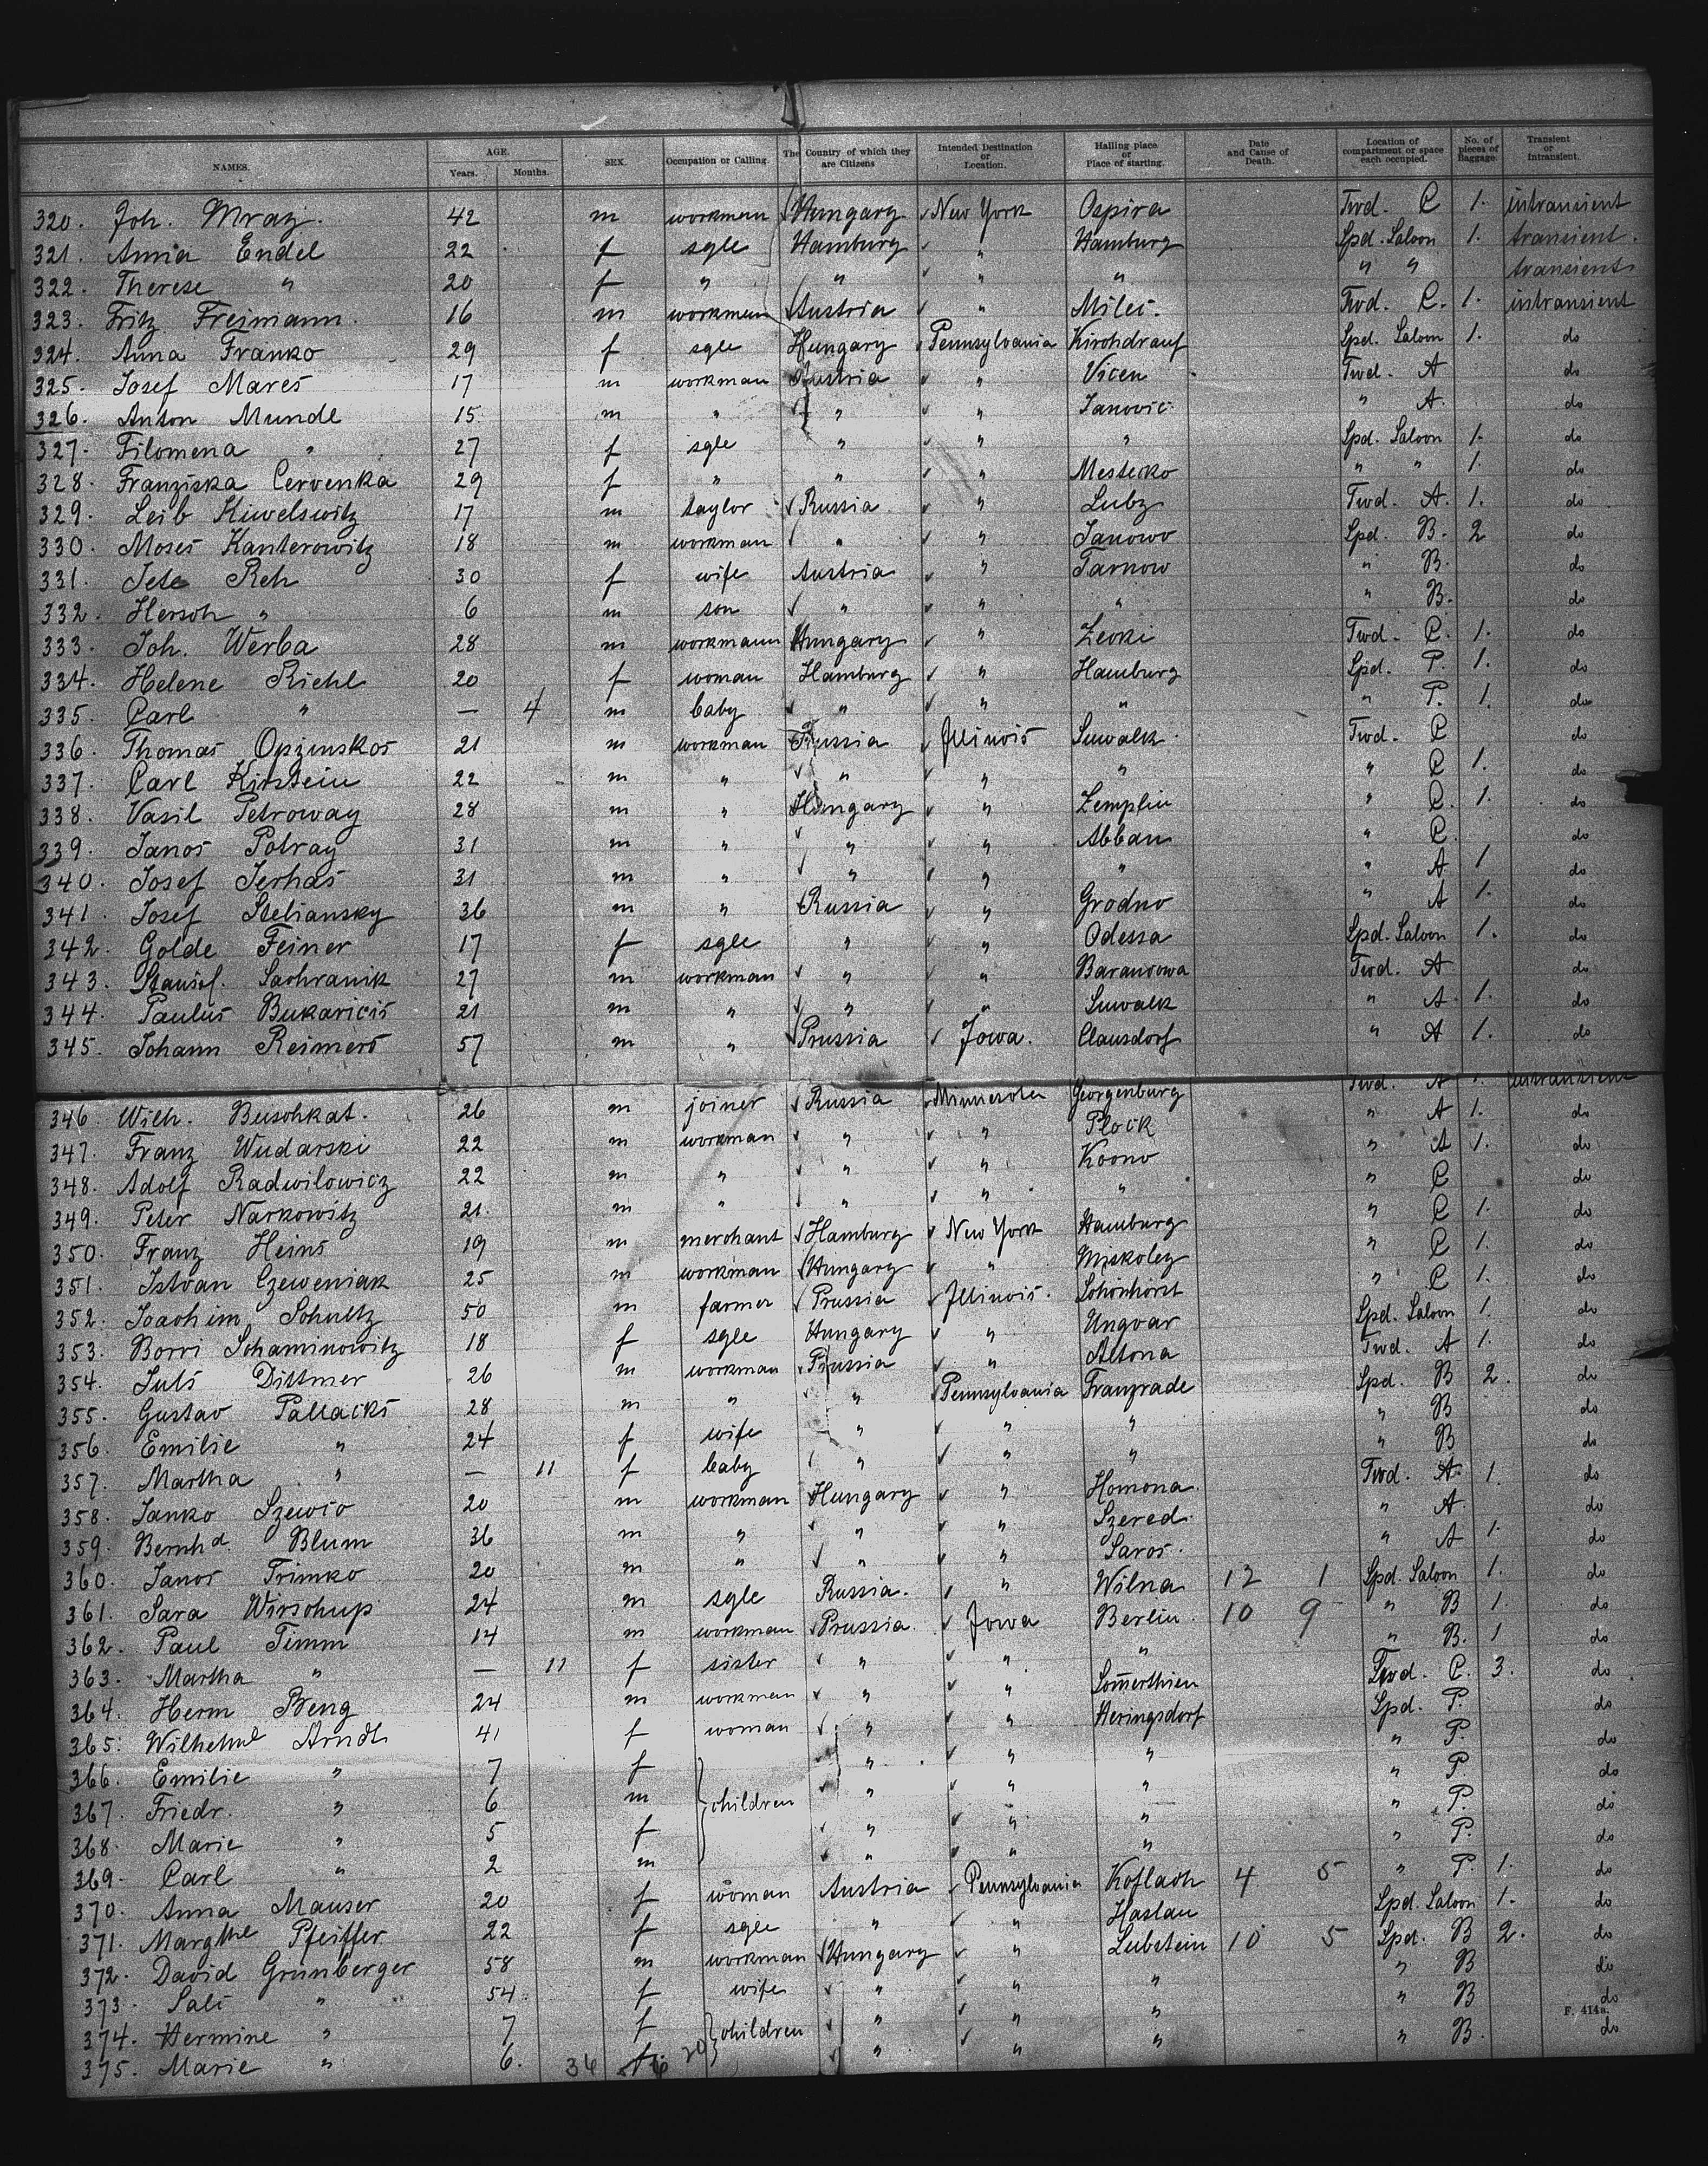 NAMES. AGE. Years. Months. SEX. Occupation or Calling. The Country of which they are Citizens Intended Destination or Location. Hailing place or Place of starting. Date and Cause of Death. Location of compartment or space each occupied. No. of pieces of Baggage. Transient or Intransient.
320. Joh. Mraz. 42 m workman Hungary New York Ospira Twd. C 1. intransient
321. Anna Endel 22 f sgle Hamburg " Hamburg Spd. Saloon 1. transient.
322. Therese " 20 f " " " " " " transient
323. Fritz Freimann. 16 m workman Austria " Milei. Twd. C. 1. intransient
324. Anna Franko 29 f sgle Hungary Pennsylvania Kirchdrauf Spd. Saloon 1. do
325. Josef Mares 17 m workman Austria " Vicen Twd. A do
326. Anton Mundl 15. m " " " Janovic. " A. do
327. Filomena " 27 f sgle " " " Spd. Saloon 1. do
328. Franziska Cervenka 29 f " " " Mestecko " " 1. do
329. Leib Kiwelswitz 17 m taylor Russia " Lubz Twd. A. 1. do
330. Moses Kanterowitz 18 m workman " " Janowo Spd. B. 2 do
331. Jete Reh 30 f wife Austria " Tarnow " B. do
332. Hersch " 6 m son " " " " B. do
333. Joh. Werba 28 m workmann Hungary " Levki Twd. C. 1. do
334. Helene Riehl 20 f woman Hamburg " Hamburg Spd. P. 1. do
335. Carl " — 4 m baby " " " " P. 1. do
336. Thomas Opzinskos 21 m workman Russia Illinois Suwalk. Twd. C do
337. Carl Kirstein 22 m " " " " " C 1. do
338. Vasil Petroway 28 m " Hungary " Zemplin " C. 1. do
339. Janos Potray 31 m " " " Abbau " C. do
340. Josef Jerhas 31 m " " " " " A 1 do
341. Josef Steliansky 36 m " Russia " Grodno " A 1. do
342. Golde Feiner 17 f sgle " " Odessa Spd. Saloon 1. do
343. Stanisf. Sachranik 27 m workman " " Baranowa Twd. A do
344. Paulus Bukaricis 21 m " " " Suwalk " A 1. do
345. Johann Reimers 57 m " Prussia Iowa. Clausdorf " A 1. do
346. Wilh. Buschkat. 26 m joiner Russia Minnesota Georgenburg Twd. A 1. intransient
347. Franz Wudarski 22 m workman " " Plock " A 1. do
348. Adolf Radwilowicz 22 m " " " Koono " A 1. do
349. Peter Narkowitz 21. m " " " " " C do
350. Franz Heins 19 m merchant Hamburg New York Hamburg " C 1. do
351. Istvan Czeweniak 25 m workman Hungary " Miskolcz " C 1. do
352. Joachim Schultz 50 m farmer Prussia Illinois. Schönhorst " C 1. do
353. Borri Schaminowitz 18 f sgle Hungary " Ungvar Spd. Saloon 1. do
354. Juls Dittmer 26 m workman Prussia " Altona Twd. A 1. do
355. Gustav Pallacks 28 m " " Pennsylvania Franzrade Spd. B 2. do
356. Emilie " 24 f wife " " " " B do
357. Martha " — 11 f baby " " " " B do
358. Janko Szewio 20 m workman Hungary " Homona. Twd. A. 1. do
359. Bernhd. Blum 36 m " " " Szered. " A do
360. Janos Trimko 20 m " " " Saros. " A 1. do
361. Sara Wirschup 24 m sgle Russia. " Wilna 12 1 Spd. Saloon 1. do
362. Paul Timm 14 m workman Prussia. Iowa Berlin. 10 9 " B 1. do
363. Martha " — 11 f sister " " " " B. 1 do
364. Herm Beng 24 m workman " " Twd. C. 3. do
365. Wilhelml Arndt 41 f woman " " Heringsdorf Spd. P. do
366. Emilie " 7 f " " " " P. do
367. Friedr. " 6 m children " " " " P do
368. Marie " 5 f " " " " P. do
369. Carl " 2 m " " " " P. do
370. Anna Mauser 20 f woman Austria Pennsylvania Koflach 4 5 " P. 1. do
371. Margthe Pfeiffer 22 f sgle " " Haslau Spd. Saloon 1. do
372. David Grünberger 58 m workman Hungary " Lubstein 10 5 Spd. B 2. do
373. Sali " 54. f wife " " " " B do
374. Hermine " 7 f children " " " " B do
F. 414a.
375. Marie " 6. f " " " " B. do
34 20